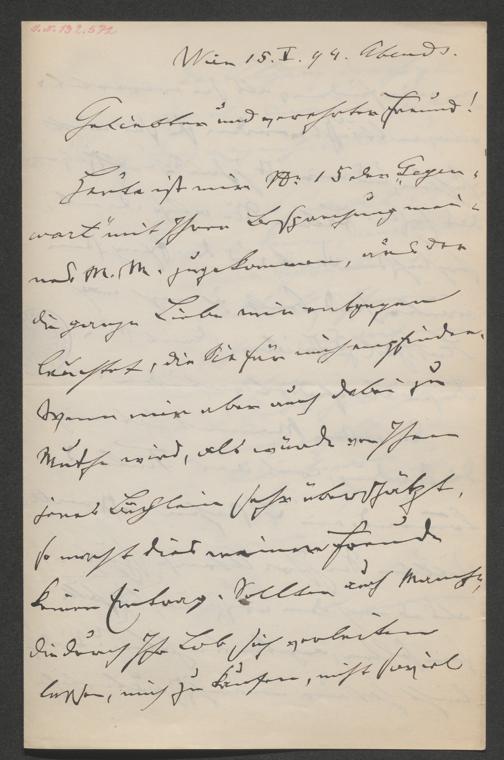 J. N. 132.572
Wien 15. V. 94. Abends.
Geliebter und verehrter Freund!
Heute ist mir Nr. 15 der „Gegen-
wart" mit Ihrer Besprechung mei-
nes M. M. zugekommen, aus der
die ganze Liebe mir entgegen
leuchtet, die Sie für mich empfinden.
Wenn mir aber auch dabei zu
Muthe wird, als würde von Ihnen
jenes Büchlein sehr überschätzt,
so macht dies meiner Freude
keinen Eintrag. Sollten auch Manche,
die durch Ihr Lob sich verleiten
lassen, mich zu kaufen, nicht soviel